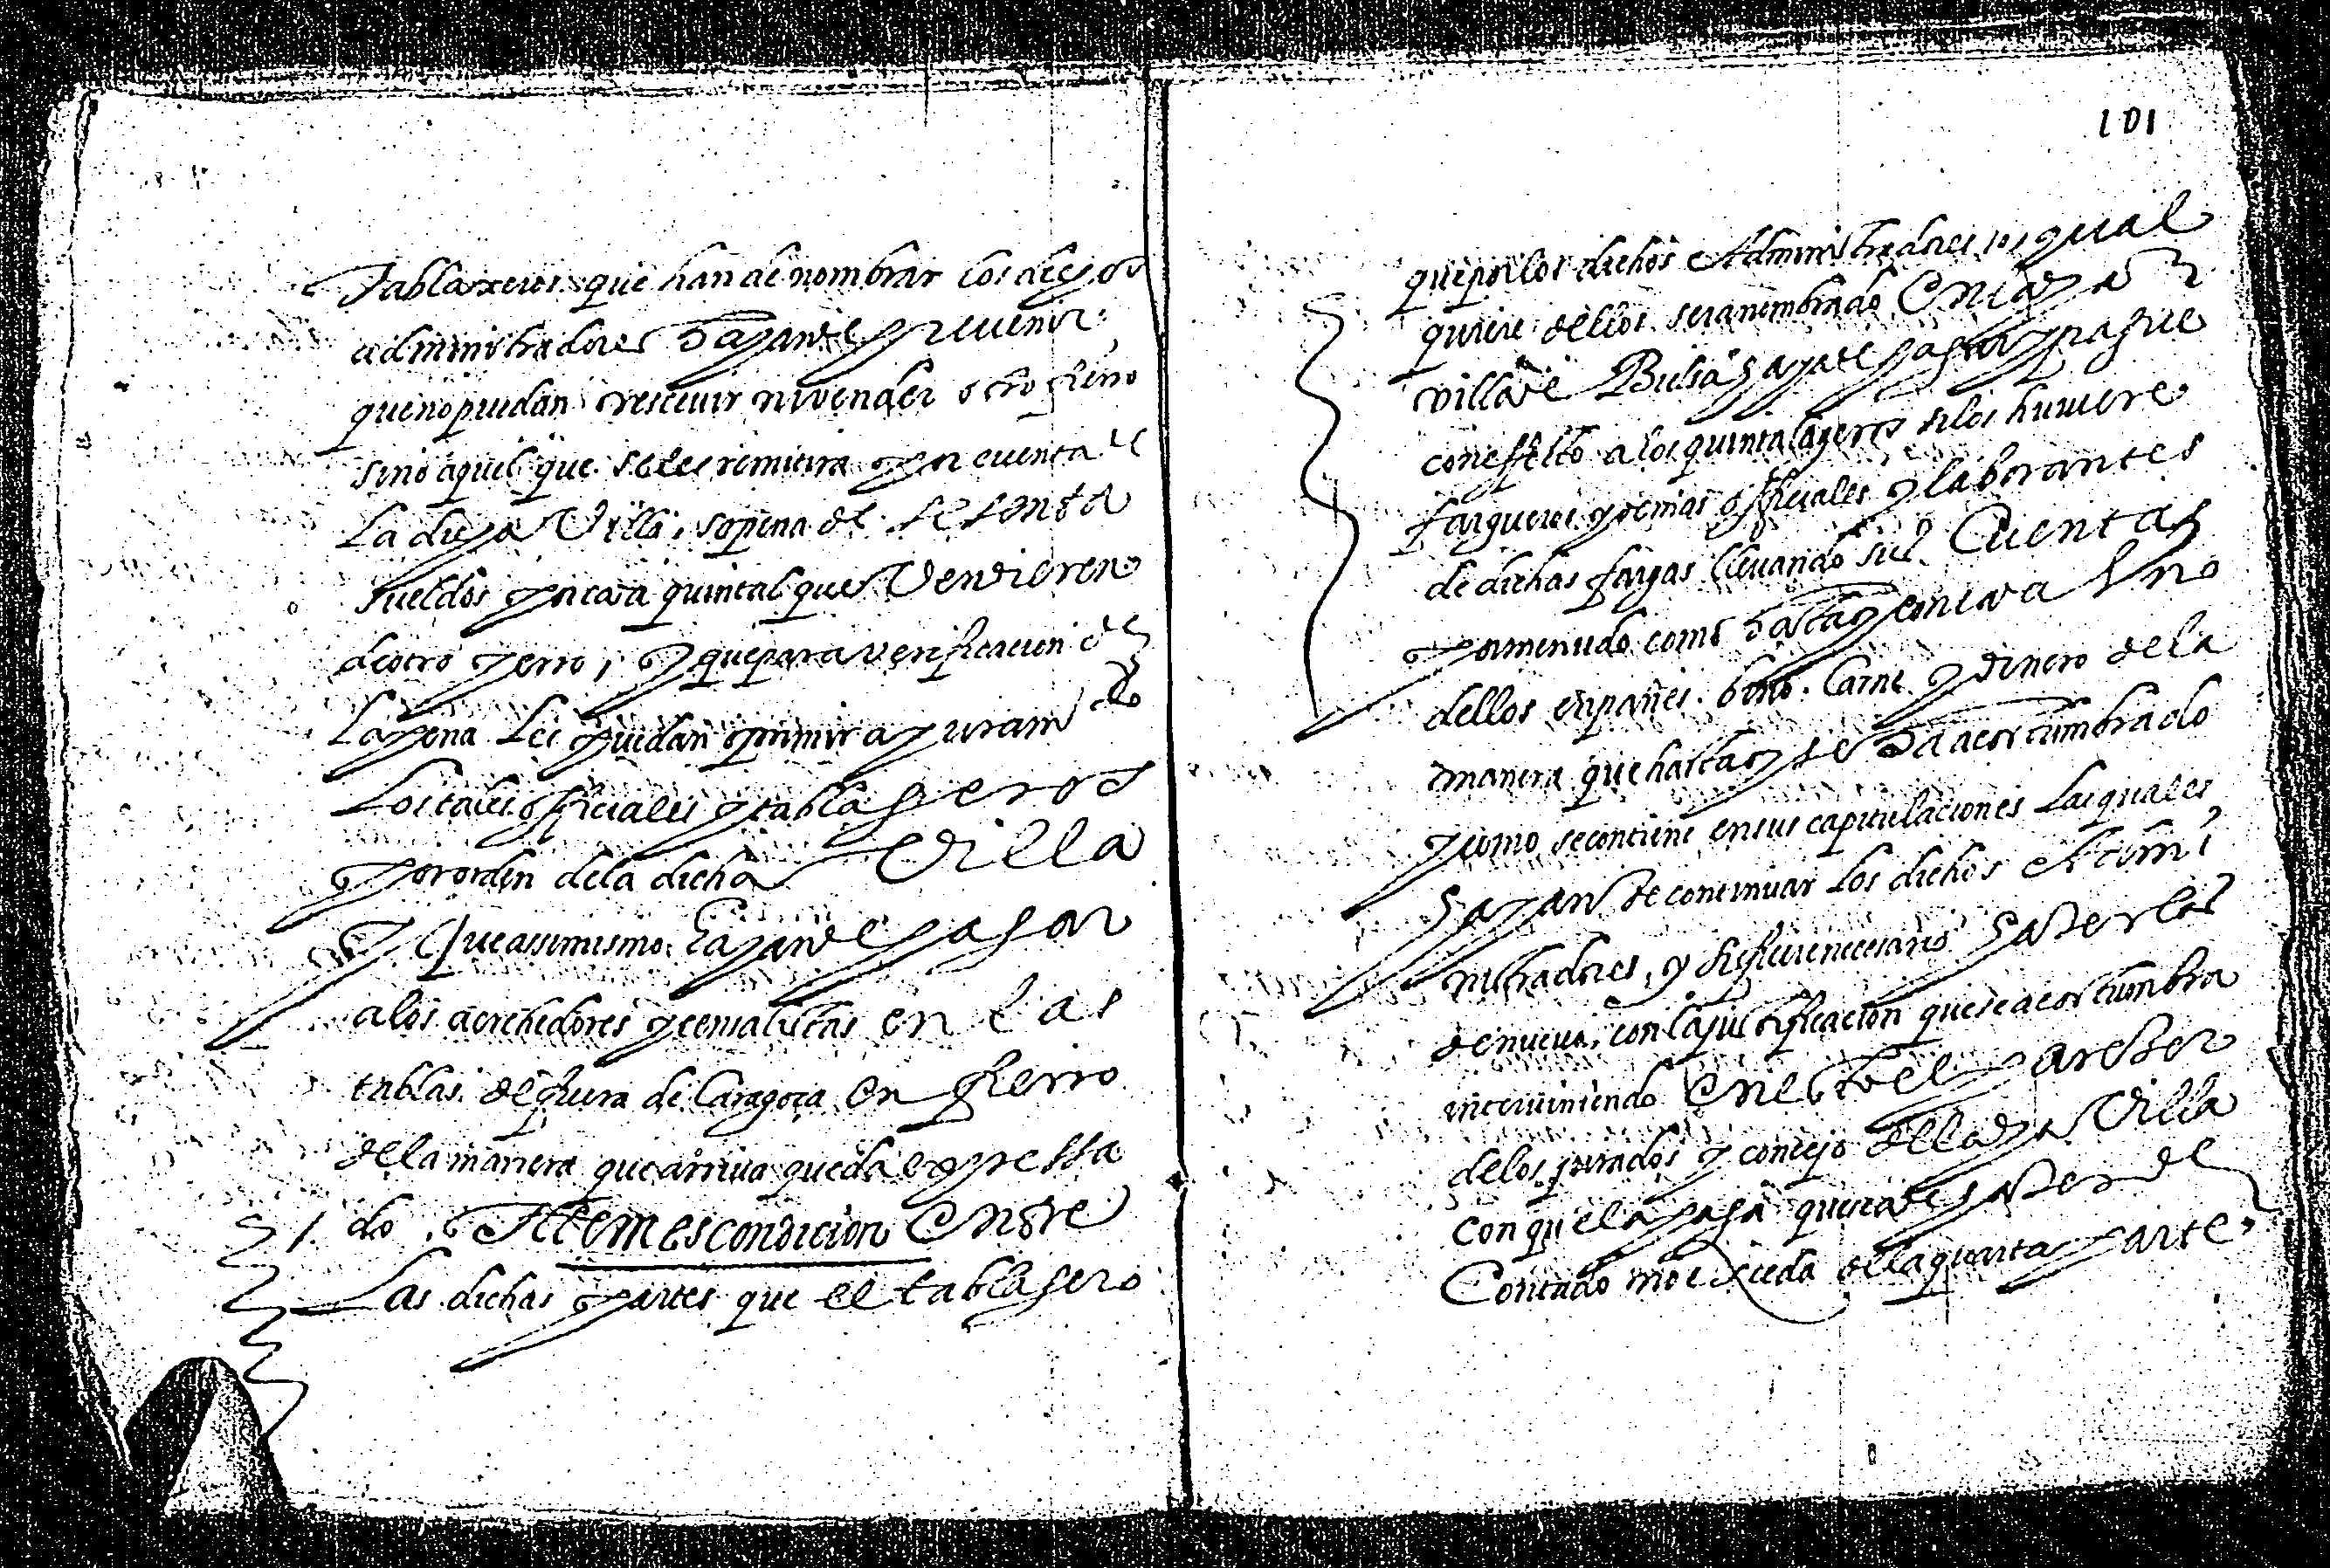 Tablaxeros que han de nombrar los dichos
administradores hayan de prevenir
que no puedan rescivir ni vender otro fierro
sino aquel que se les remitira por cuenta de
la dicha Villa, so pena de sesenta
sueldos por cada quintal que vendieren
de otro yerro, y que para verificacion de
la pena les puedan oprimir a juram
los tales officiales y tablageros
por orden de la dicha Villa
y Que assimismo hayan de pagar
a los acrehedores y censalistas en las
tablas de fuera de Caragoça en fierro
de la manera que arriva queda expressa
do. Item es condicion Entre
Las dichas partes que el tablagero
101
que por los dichos Administradores o qual
quiere dellos sera nombrado En la dicha
villa de Bielsa haya de pagar y pague
con effecto a los quintalayeros si los huviere
fargueros y demas officiales y laborantes
de dichas fargas llevando sus Cuentas
por menudo como hasta y con cada Uno
dellos en panes. bino. Carne y dinero de la
manera que hasta oy se ha acostumbrado
y como se contiene en sus capitulaciones Las quales
hayan de continuar Los dichos Admi
nistradores, y si fuere necesario hazerlas
de nueva, con la justificacion que se acostumbra
interviniendo En esto el parescer
de los jurados y concejo de la dicha Villa
Con que la paga que se a de hazer de
Contado no exceda de la quarta parte